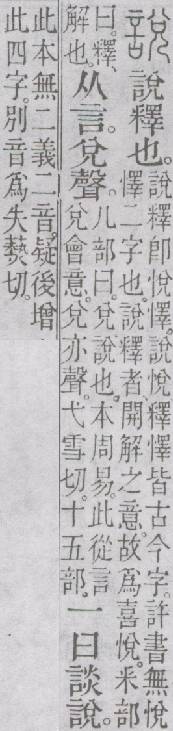 說 說釋也。說釋卽悅懌。說悅釋懌皆古今字。許書無悅
懌二字也。說釋者、開解之意。故爲喜悅。釆部
曰。釋、
解也。
从言。兌聲。
儿部曰。兌說也。本周易。此從言
兌會意。兌亦聲。弋雪切。十五部。
一曰談說。
此本無二義二音。疑後增
此四字。別音爲失爇切。